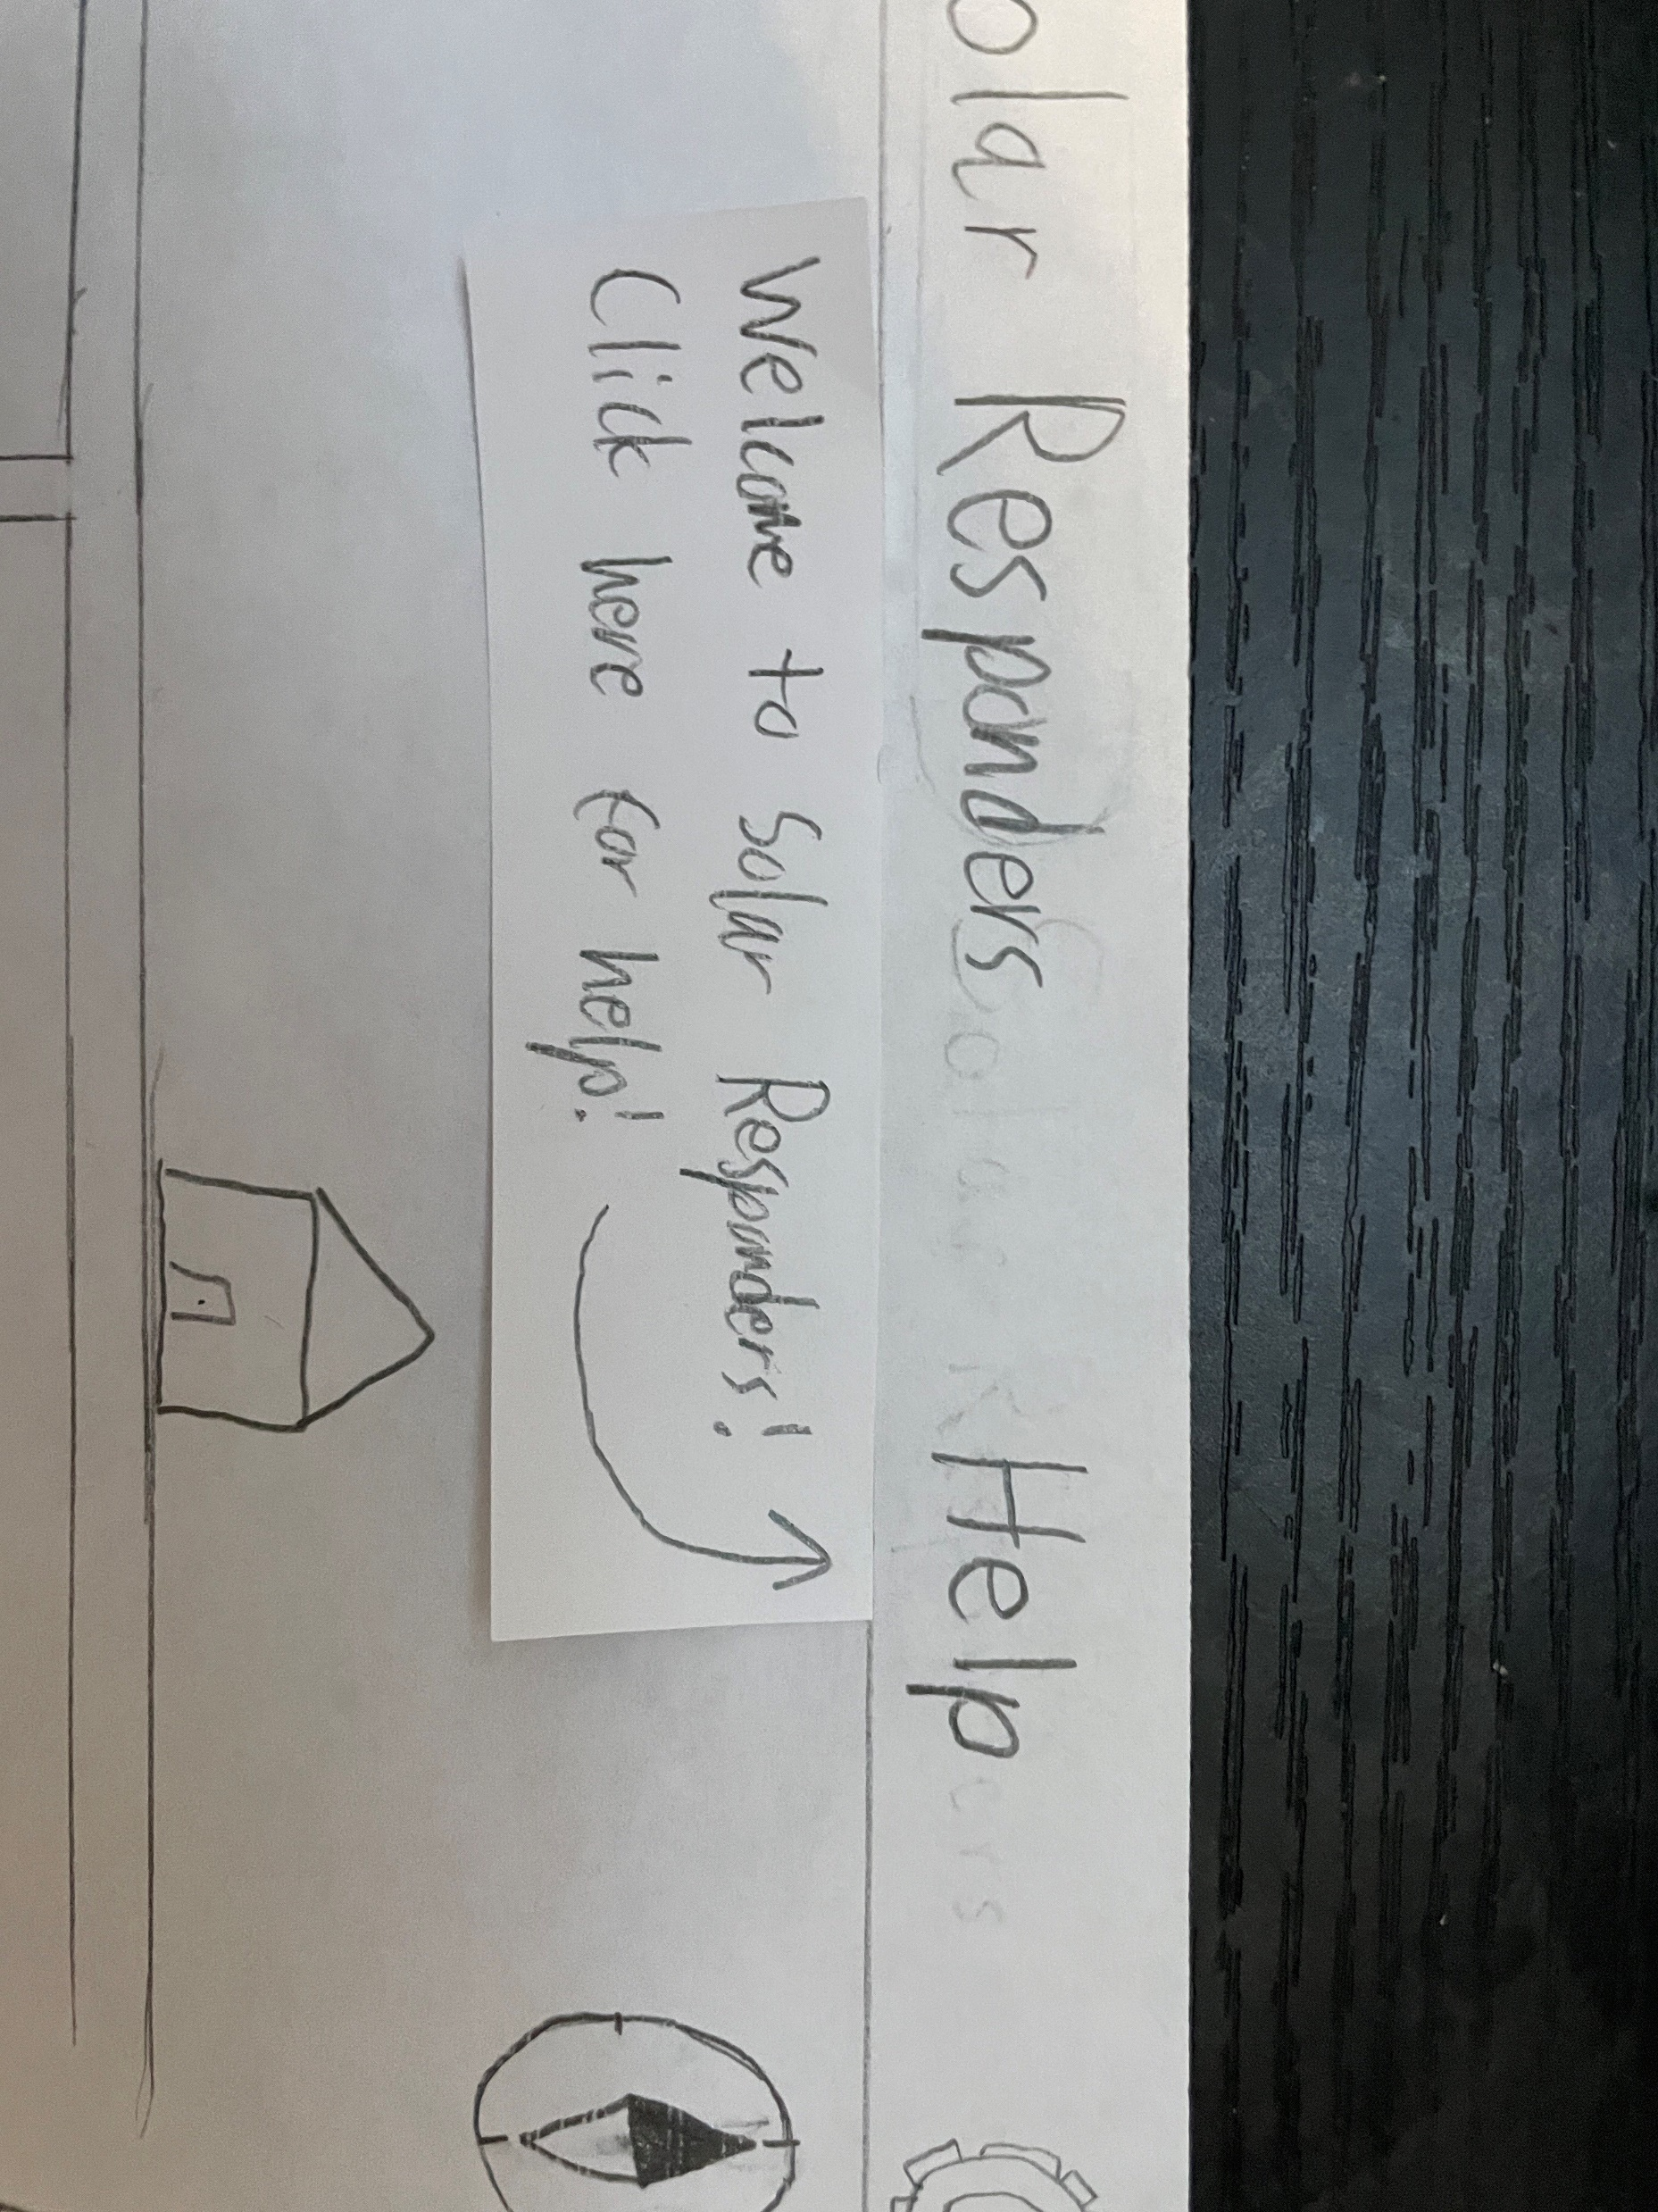 olar Responders Help
Welcome to Solar Responders!
Click here for help!